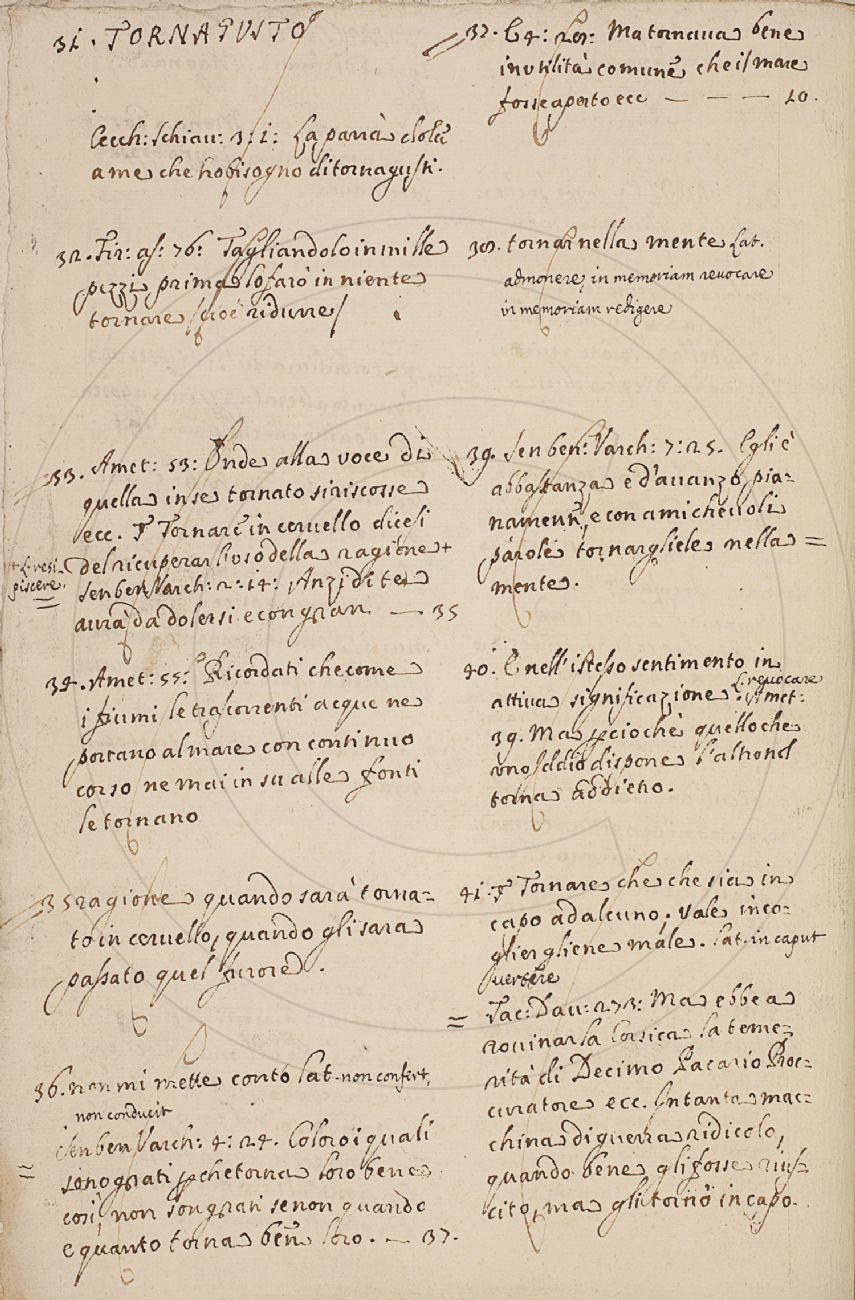 31. TORNAGUSTO
Cecch: Schiau: 3: 1: La parrà dolcē
a me che ho bisogno di tornagusti.
32. Fir: as: 76: Tagliandolo in mille
pezzi prima lo farò in niente
tornare / cioè ridurre /
33. Amet: 53: Onde alla voce di
quella in se tornato si riscosse
ecc. ¶ Tornare in ceruello dicesi
del ricuperar l'uso della ragione +
+ L. resi-
piscere.
Sen ben Varch: 2: 14: Anzi di te
aurà da dolersi e con gran — 35
34. Amet: 55: Ricordati che come
i fiumi le trascorrenti acque ne
portano al mare con continuo
corso ne mai in su alle fonti
le tornano
35 ragione quando sarà torna=
to in ceruello, quando gli sara
passato quel furore.
36. non mi mette conto Lat. non confert,
non conducit
= Sen ben Varch: 4: 24. Coloro i quali
sono grati pche torna loro bene
così, non son grati se non quando
e quanto torna benē loro. — 37.
37. C4: Ma tornaua bene
in utilità comunē che il mare
fosse aperto ecc — — — 10.
38. tornar nella mente Lat.
admonere, in memoriam reuocare
in memoriam redigere
39. Sen ben: Varch: 7: 25. Egli è
abbastanza e d'auanzo, pia-
namentē, e con amicheuoli
parole tornargliele nella =
mente.
40. E nell'istesso sentimento in
attiua significazione L. reuocare Amet:
39. Ma pcioche quello che
uno Iddio dispone l'altro nol
torna addietro.
41. ¶ Tornare che che sia in
capo ad alcuno. Vale inco-
glier gliene male. Lat. in caput
uertere
= Tac: Dau: 273: Ma ebbe a
rouinar la Corsica la teme-
rità di Decimo Pacario Proc-
curatore ecc. Intanta mac-
china di guerra ridicolo,
quando bene gli fosse rius-
cito, ma gli tornò in capo.